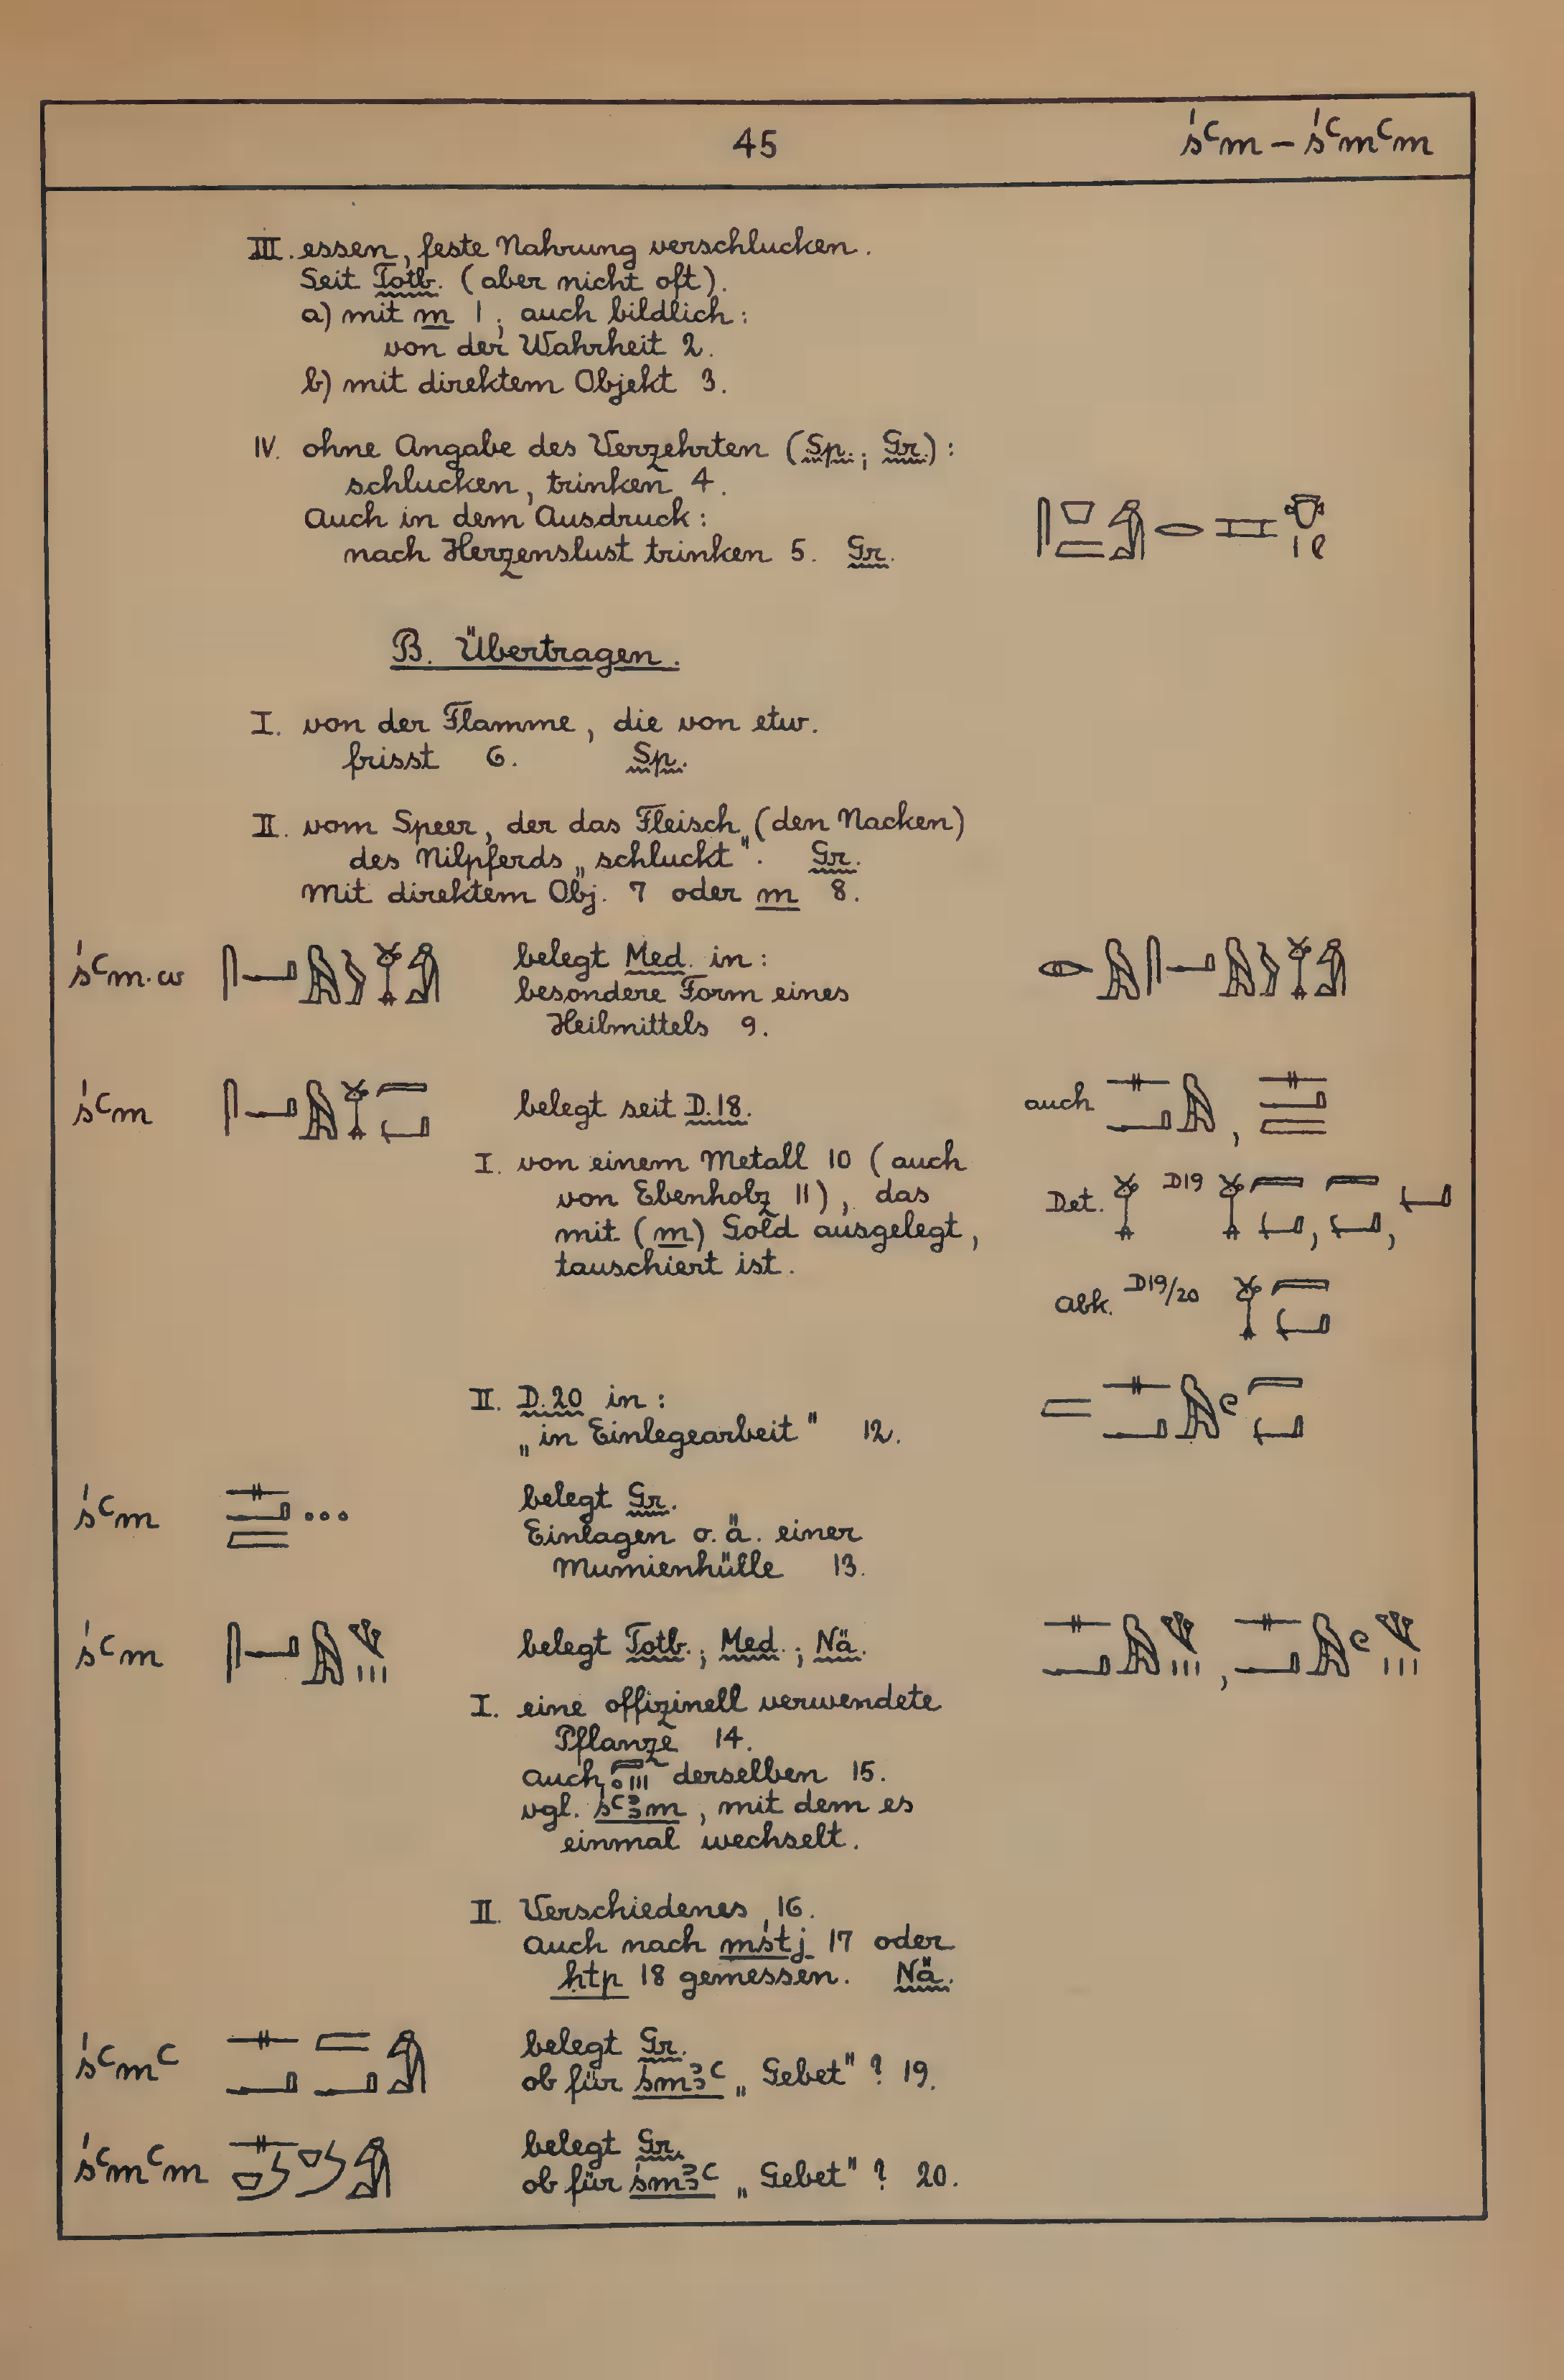 45
śꜥm – śꜥmꜥm
III. essen, feste Nahrung verschlucken.
Seit Totb. (aber nicht oft).
a) mit m 1; auch bildlich:
von der Wahrheit 2.
b) mit direktem Objekt 3.
IV. ohne Angabe des Verzehrten (Sp.; Gr.):
schlucken, trinken 4.
Auch in dem Ausdruck:
nach Herzenslust trinken 5. Gr.
B. Übertragen.
I. von der Flamme, die von etw.
frisst 6. Sp.
II. vom Speer, der das Fleisch (den Nacken)
des Nilpferds „schluckt". Gr.
Mit direktem Obj. 7 oder m 8.
śꜥm·w belegt Med. in:
besondere Form eines
Heilmittels 9.
śꜥm belegt seit D.18. auch
I. von einem Metall 10 (auch
von Ebenholz 11), das Det. D19
mit (m) Gold ausgelegt,
tauschiert ist.
Abk. D19/20
II. D.20 in:
„in Einlegearbeit" 12.
śꜥm belegt Gr.
Einlagen o.ä. einer
Mumienhülle 13.
śꜥm belegt Totb.; Med.; Nä.
I. eine offizinell verwendete
Pflanze 14.
auch derselben 15.
vgl. śꜥꜣm, mit dem es
einmal wechselt.
II. Verschiedenes 16.
Auch nach mśtj 17 oder
ḥtp 18 gemessen. Nä.
śꜥmꜥ belegt Gr.
ob für śmꜣꜥ „Gebet"? 19.
śꜥmꜥm belegt Gr.
ob für śmꜣꜥ „Gebet"? 20.